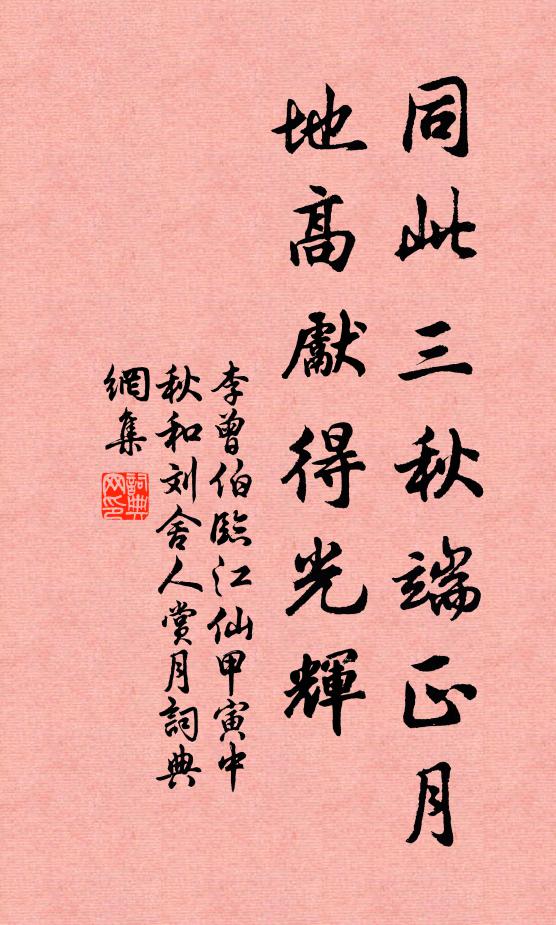 同此三秋端正月
地高獻得光輝
李曾伯臨江仙甲寅中
秋和刘舍人賞月詞典
網集
詞典网印